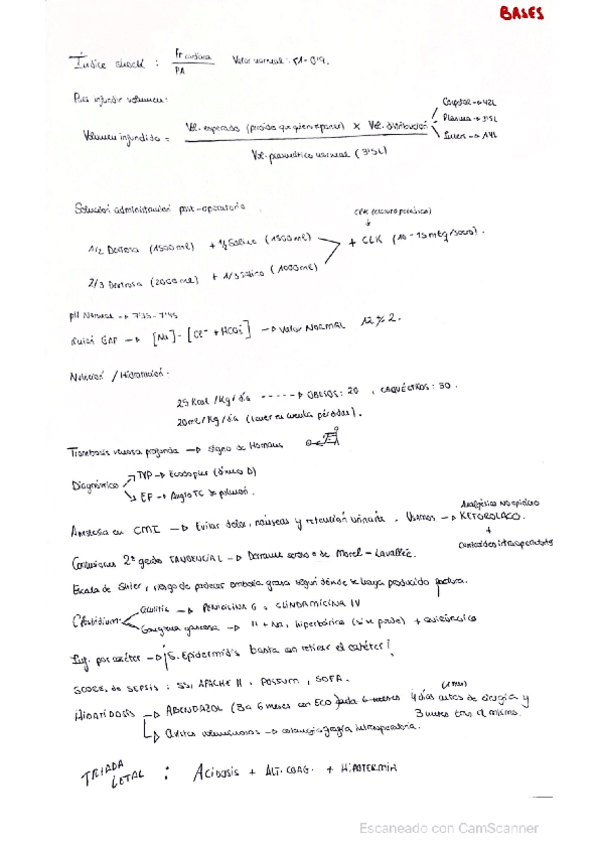 BASES
Índice shock : Fr cardiaca / PA Valor normal :
Para infundir volumen:
Volumen infundido = Vol. esperado (perdido que quiero aportar) x Vol. distribución / Vol. plasmático normal (3'5L)
Plasma → 3'5L
Solución administración post-operatorio
1/2 Dextrosa (1500 ml) + 1/2 Salino (1500 ml)
2/3 Dextrosa (2000 ml) + 1/3 Salino (1000 ml)
+ ClK
pH Normal → 7'35 - 7'45
GAP → [Na] - [Cl⁻ + HCO₃] → Valor NORMAL 12 ± 2.
Nutrición / Hidratación.
25 Kcal / Kg / día → OBESOS: 20 , CAQUÉCTICOS: 30.
20 ml / Kg / día (tener en cuenta pérdidas).
Trombosis venosa profunda → signo de Homans
Diagnóstico
TVP → Ecodoppler (dímero D)
EP → AngioTC de pulmón.
Anestesia en CMI → Evitar dolor, náuseas y retención urinaria. Usamos → KETOROLACO.
Analgésico no opioide
+
Contusiones 2º grado TANGENCIAL → Derrame seroso de Morel - Lavallée.
Escala de , riesgo de padecer embolia grasa según dónde se haya producido fractura.
Clostridium
Celulitis → PENICILINA G , CLINDAMICINA IV
Gangrena gaseosa → hiperbárica (si se puede) + quirúrgico
Inf. por catéter → ¡S. Epidermidis basta con retirar el catéter!
SCORE de SEPSIS : SS, APACHE II , POSSUM , SOFA.
HIDATIDOSIS → ALBENDAZOL (3 a 6 meses con ECO) 4 días antes de cirugía y
3 meses tras el mismo.
Quistes voluminosos → colangiografía intraoperatoria.
TRIADA LETAL : ACIDOSIS + ALT. COAG. + HIPOTERMIA
Escaneado con CamScanner